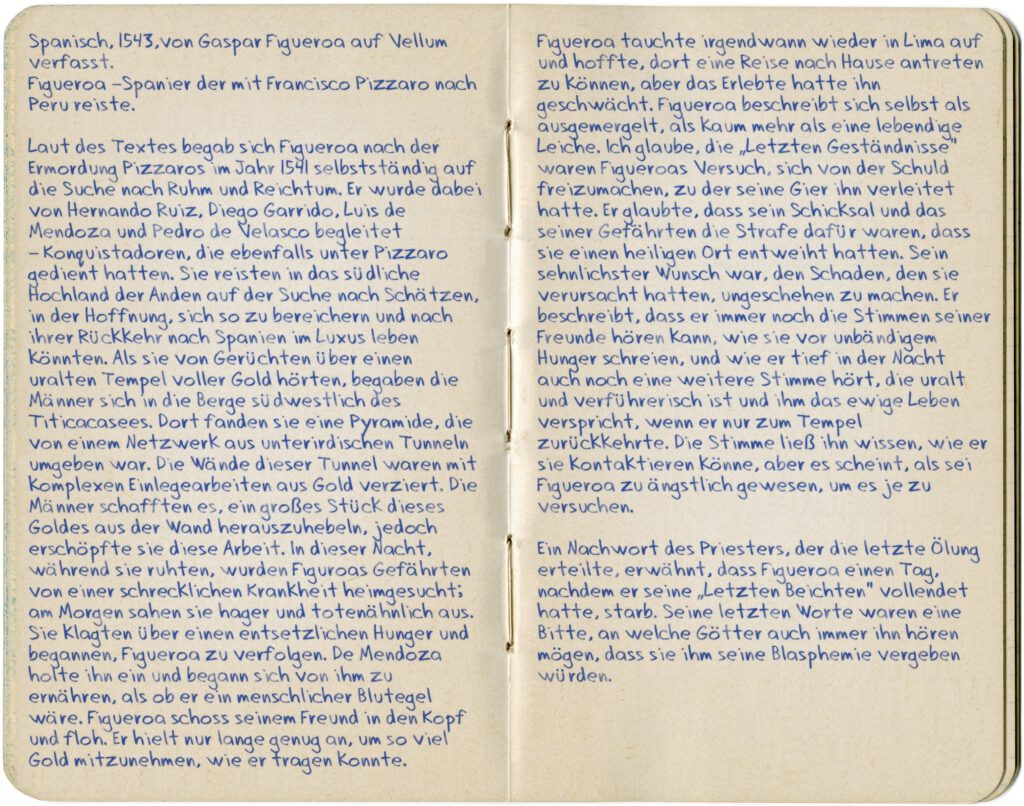 Spanisch, 1543, von Gaspar Figueroa auf Vellum
verfasst.
Figueroa – Spanier der mit Francisco Pizzaro nach
Peru reiste.
Laut des Textes begab sich Figueroa nach der
Ermordung Pizzaros im Jahr 1541 selbstständig auf
die Suche nach Ruhm und Reichtum. Er wurde dabei
von Hernando Ruiz, Diego Garrido, Luis de
Mendoza und Pedro de Velasco begleitet
– Konquistadoren, die ebenfalls unter Pizzaro
gedient hatten. Sie reisten in das südliche
Hochland der Anden auf der Suche nach Schätzen,
in der Hoffnung, sich so zu bereichern und nach
ihrer Rückkehr nach Spanien im Luxus leben
könnten. Als sie von Gerüchten über einen
uralten Tempel voller Gold hörten, begaben die
Männer sich in die Berge südwestlich des
Titicacasees. Dort fanden sie eine Pyramide, die
von einem Netzwerk aus unterirdischen Tunneln
umgeben war. Die Wände dieser Tunnel waren mit
komplexen Einlegearbeiten aus Gold verziert. Die
Männer schafften es, ein großes Stück dieses
Goldes aus der Wand herauszuhebeln, jedoch
erschöpfte sie diese Arbeit. In dieser Nacht,
während sie ruhten, wurden Figuroas Gefährten
von einer schrecklichen Krankheit heimgesucht;
am Morgen sahen sie hager und totenähnlich aus.
Sie klagten über einen entsetzlichen Hunger und
begannen, Figueroa zu verfolgen. De Mendoza
holte ihn ein und begann sich von ihm zu
ernähren, als ob er ein menschlicher Blutegel
wäre. Figueroa schoss seinem Freund in den Kopf
und floh. Er hielt nur lange genug an, um so viel
Gold mitzunehmen, wie er tragen konnte.
Figueroa tauchte irgendwann wieder in Lima auf
und hoffte, dort eine Reise nach Hause antreten
zu können, aber das Erlebte hatte ihn
geschwächt. Figueroa beschreibt sich selbst als
ausgemergelt, als kaum mehr als eine lebendige
Leiche. Ich glaube, die „Letzten Geständnisse"
waren Figueroas Versuch, sich von der Schuld
freizumachen, zu der seine Gier ihn verleitet
hatte. Er glaubte, dass sein Schicksal und das
seiner Gefährten die Strafe dafür waren, dass
sie einen heiligen Ort entweiht hatten. Sein
sehnlichster Wunsch war, den Schaden, den sie
verursacht hatten, ungeschehen zu machen. Er
beschreibt, dass er immer noch die Stimmen seiner
Freunde hören kann, wie sie vor unbändigem
Hunger schreien, und wie er tief in der Nacht
auch noch eine weitere Stimme hört, die uralt
und verführerisch ist und ihm das ewige Leben
verspricht, wenn er nur zum Tempel
zurückkehrte. Die Stimme ließ ihn wissen, wie er
sie kontaktieren könne, aber es scheint, als sei
Figueroa zu ängstlich gewesen, um es je zu
versuchen.
Ein Nachwort des Priesters, der die letzte Ölung
erteilte, erwähnt, dass Figueroa einen Tag,
nachdem er seine „Letzten Beichten" vollendet
hatte, starb. Seine letzten Worte waren eine
Bitte, an welche Götter auch immer ihn hören
mögen, dass sie ihm seine Blasphemie vergeben
würden.